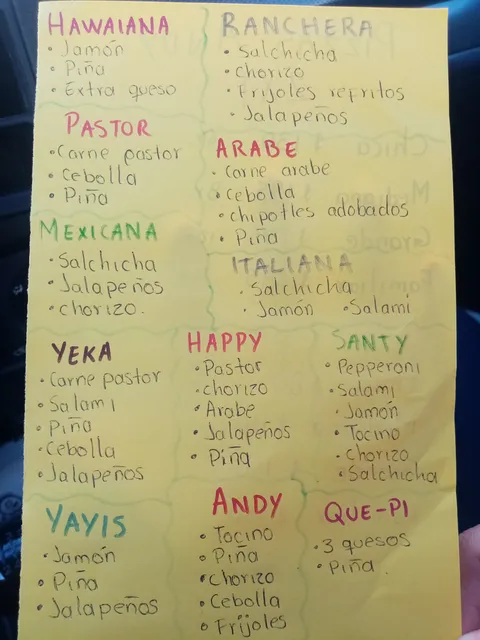 HAWAIIANA
• Jamón
• Piña
• Extra queso
RANCHERA
• Salchicha
• Chorizo
• Frijoles refritos
• Jalapeños
PASTOR
• Carne pastor
• Cebolla
• Piña
ARABE
• Carne arabe
• Cebolla
• Chipotles adobados
• Piña
MEXICANA
• Salchicha
• Jalapeños
• Chorizo.
ITALIANA
• Salchicha
• Jamón • Salami
YEKA
• Carne pastor
• Salami
• Piña
• Cebolla
• Jalapeños
HAPPY
• Pastor
• Chorizo
• Arabe
• Jalapeños
• Piña
SANTY
• Pepperoni
• Salami
• Jamón
• Tocino
• Chorizo
• Salchicha
YAYIS
• Jamón
• Piña
• Jalapeños
ANDY
• Tocino
• Piña
• Chorizo
• Cebolla
• Frijoles
QUE-PI
• 3 quesos
• Piña